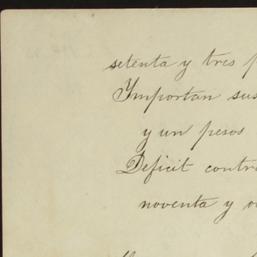 setenta y tres
Importan sus
y un pesos
Deficit contra
noventa y